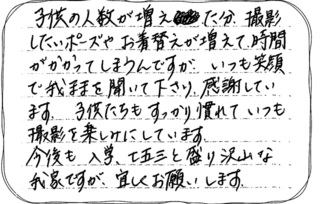 子供の人数が増えた分、撮影
したいポーズやお着替えが増えて、時間
がかかってしまうんですが、いつも笑顔
で我ままを聞いて下さり、感謝してい
ます。子供たちもすっかり慣れていつも
撮影を楽しみにしています。
今後も入学、七五三と盛り沢山な
我家ですが、宜しくお願いします。